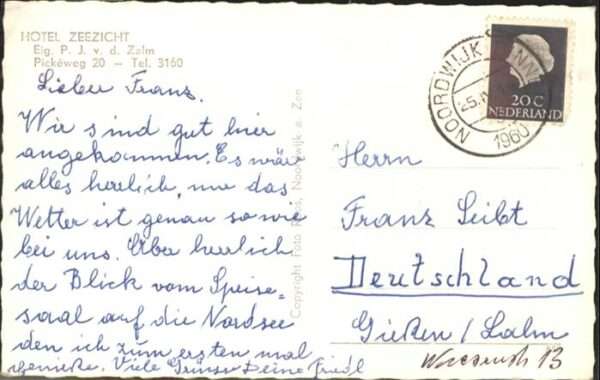 HOTEL ZEEZICHT
Eig. P. J. v. d. Zalm
Pickéweg 20 — Tel. 3160
Lieber Franz.
Wir sind gut hier
angekommen. Es wär
alles herrlich, nur das
Wetter ist genau so wie
bei uns. Aber herrlich
der Blick vom Speise=
saal auf die Nordsee
den ich zum ersten mal
genieße. Viele Grüsse Deine Friedl
Copyright Foto Noordwijk a. Zee
NOORDWIJK
25.
1960
20 C
NEDERLAND
Herrn
Franz Seibt
Deutschland
Gießen / Lahn
13